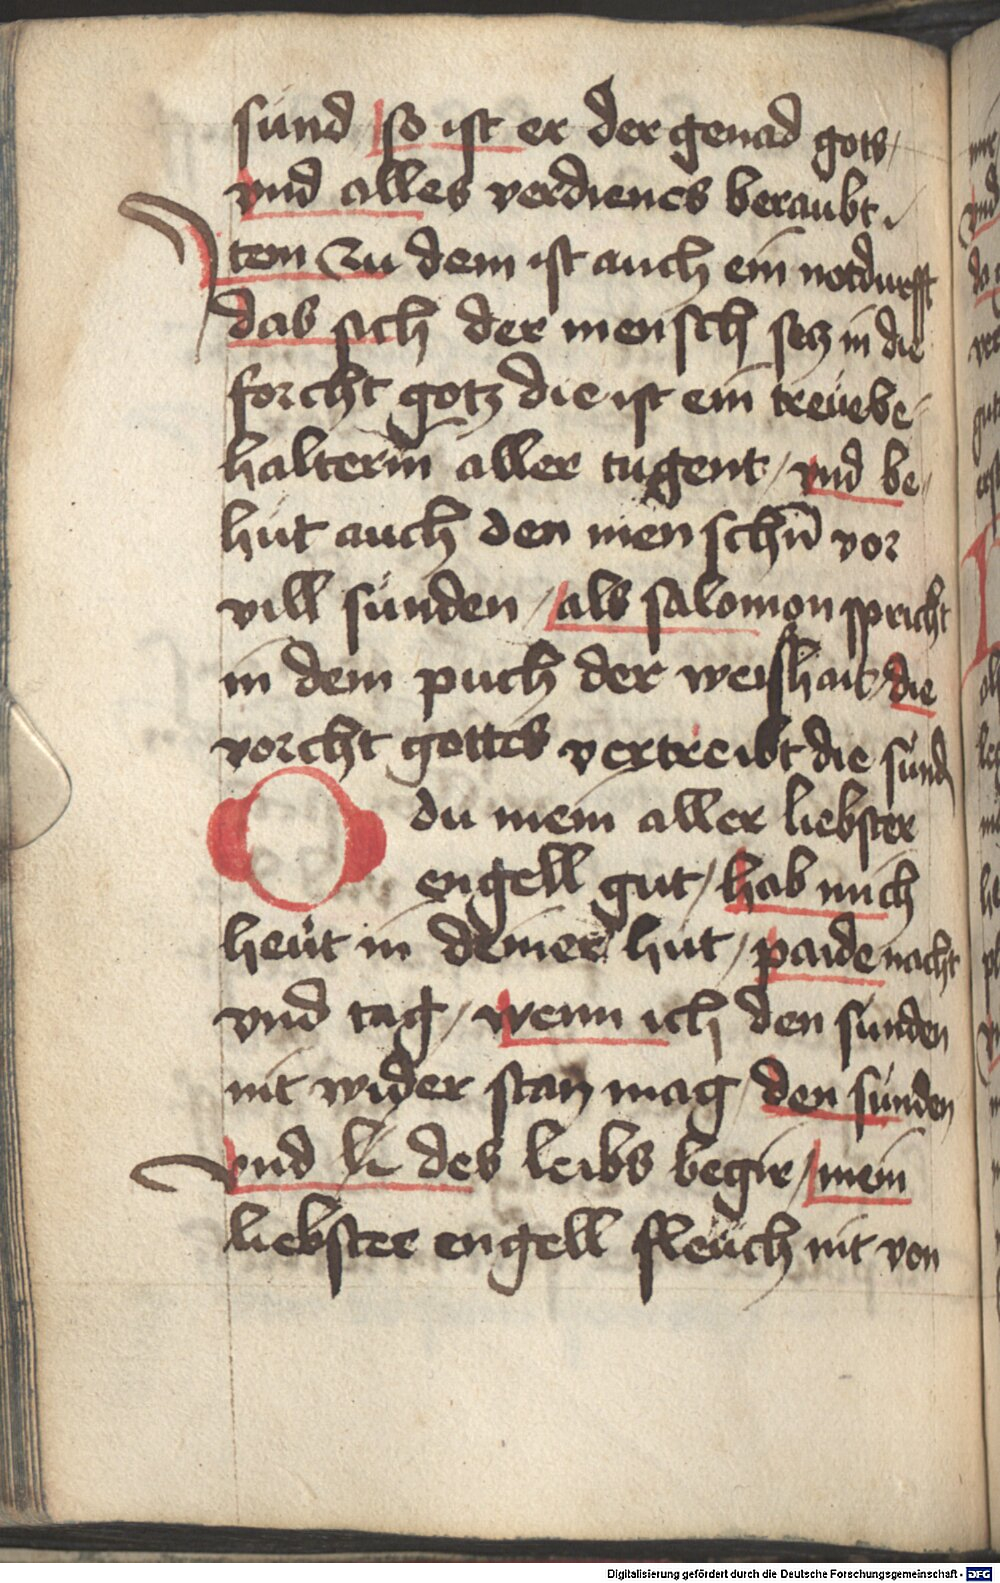 sünd so ist er der genad gots /
vnd alles verdiencs beraubt .
Jtem zu dem ist auch ein notdurfft
das sich der mensch setz in die
forcht gotz die ist ein treüe be-
halterin aller tugent / vnd be-
hüt auch den menschn̄ vor
vill sünden / als salomon spricht
in dem puch der weishait / die
vorcht gottes vertreibt die sünd
O du mein aller liebster
engell gut / hab mich
heüt in deiner hüt / paide nacht
vnd tag / wenn ich den sunden
nit wider stan mag / den sünden
vnd li des leibs begir / mein
liebster engell fleüch nit von
Digitalisierung gefördert durch die Deutsche Forschungsgemeinschaft - DFG